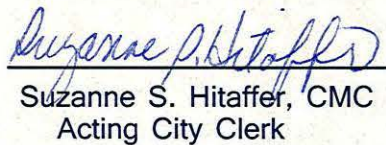 Suzanne S. Hitaffer
Suzanne S. Hitaffer, CMC
Acting City Clerk